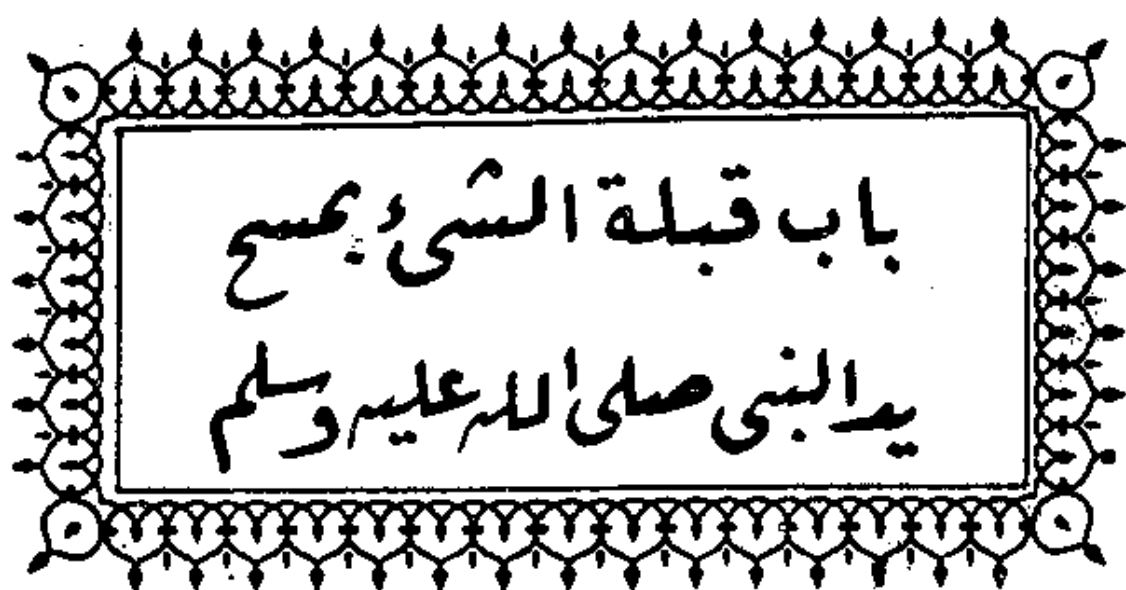 باب قبلة الشىء يمسح
يد النبى صلى الله عليه وسلم